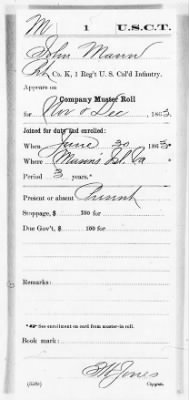 M | 1 | U.S.C.T.
John Mann
Pvt, Co. K, 1 Reg't U. S. Col'd Infantry.
Appears on
Company Muster Roll
for Nov & Dec, 1863.
Joined for duty and enrolled:
When June 30, 1863.
Where Mason's Isl. Va
Period 3 years.*
Present or absent Present
Stoppage, $ 100 for
Due Gov't, $ 100 for
Remarks:
*See enrollment on card from muster-in roll.
Book mark:
Jones
(358) Copyist.